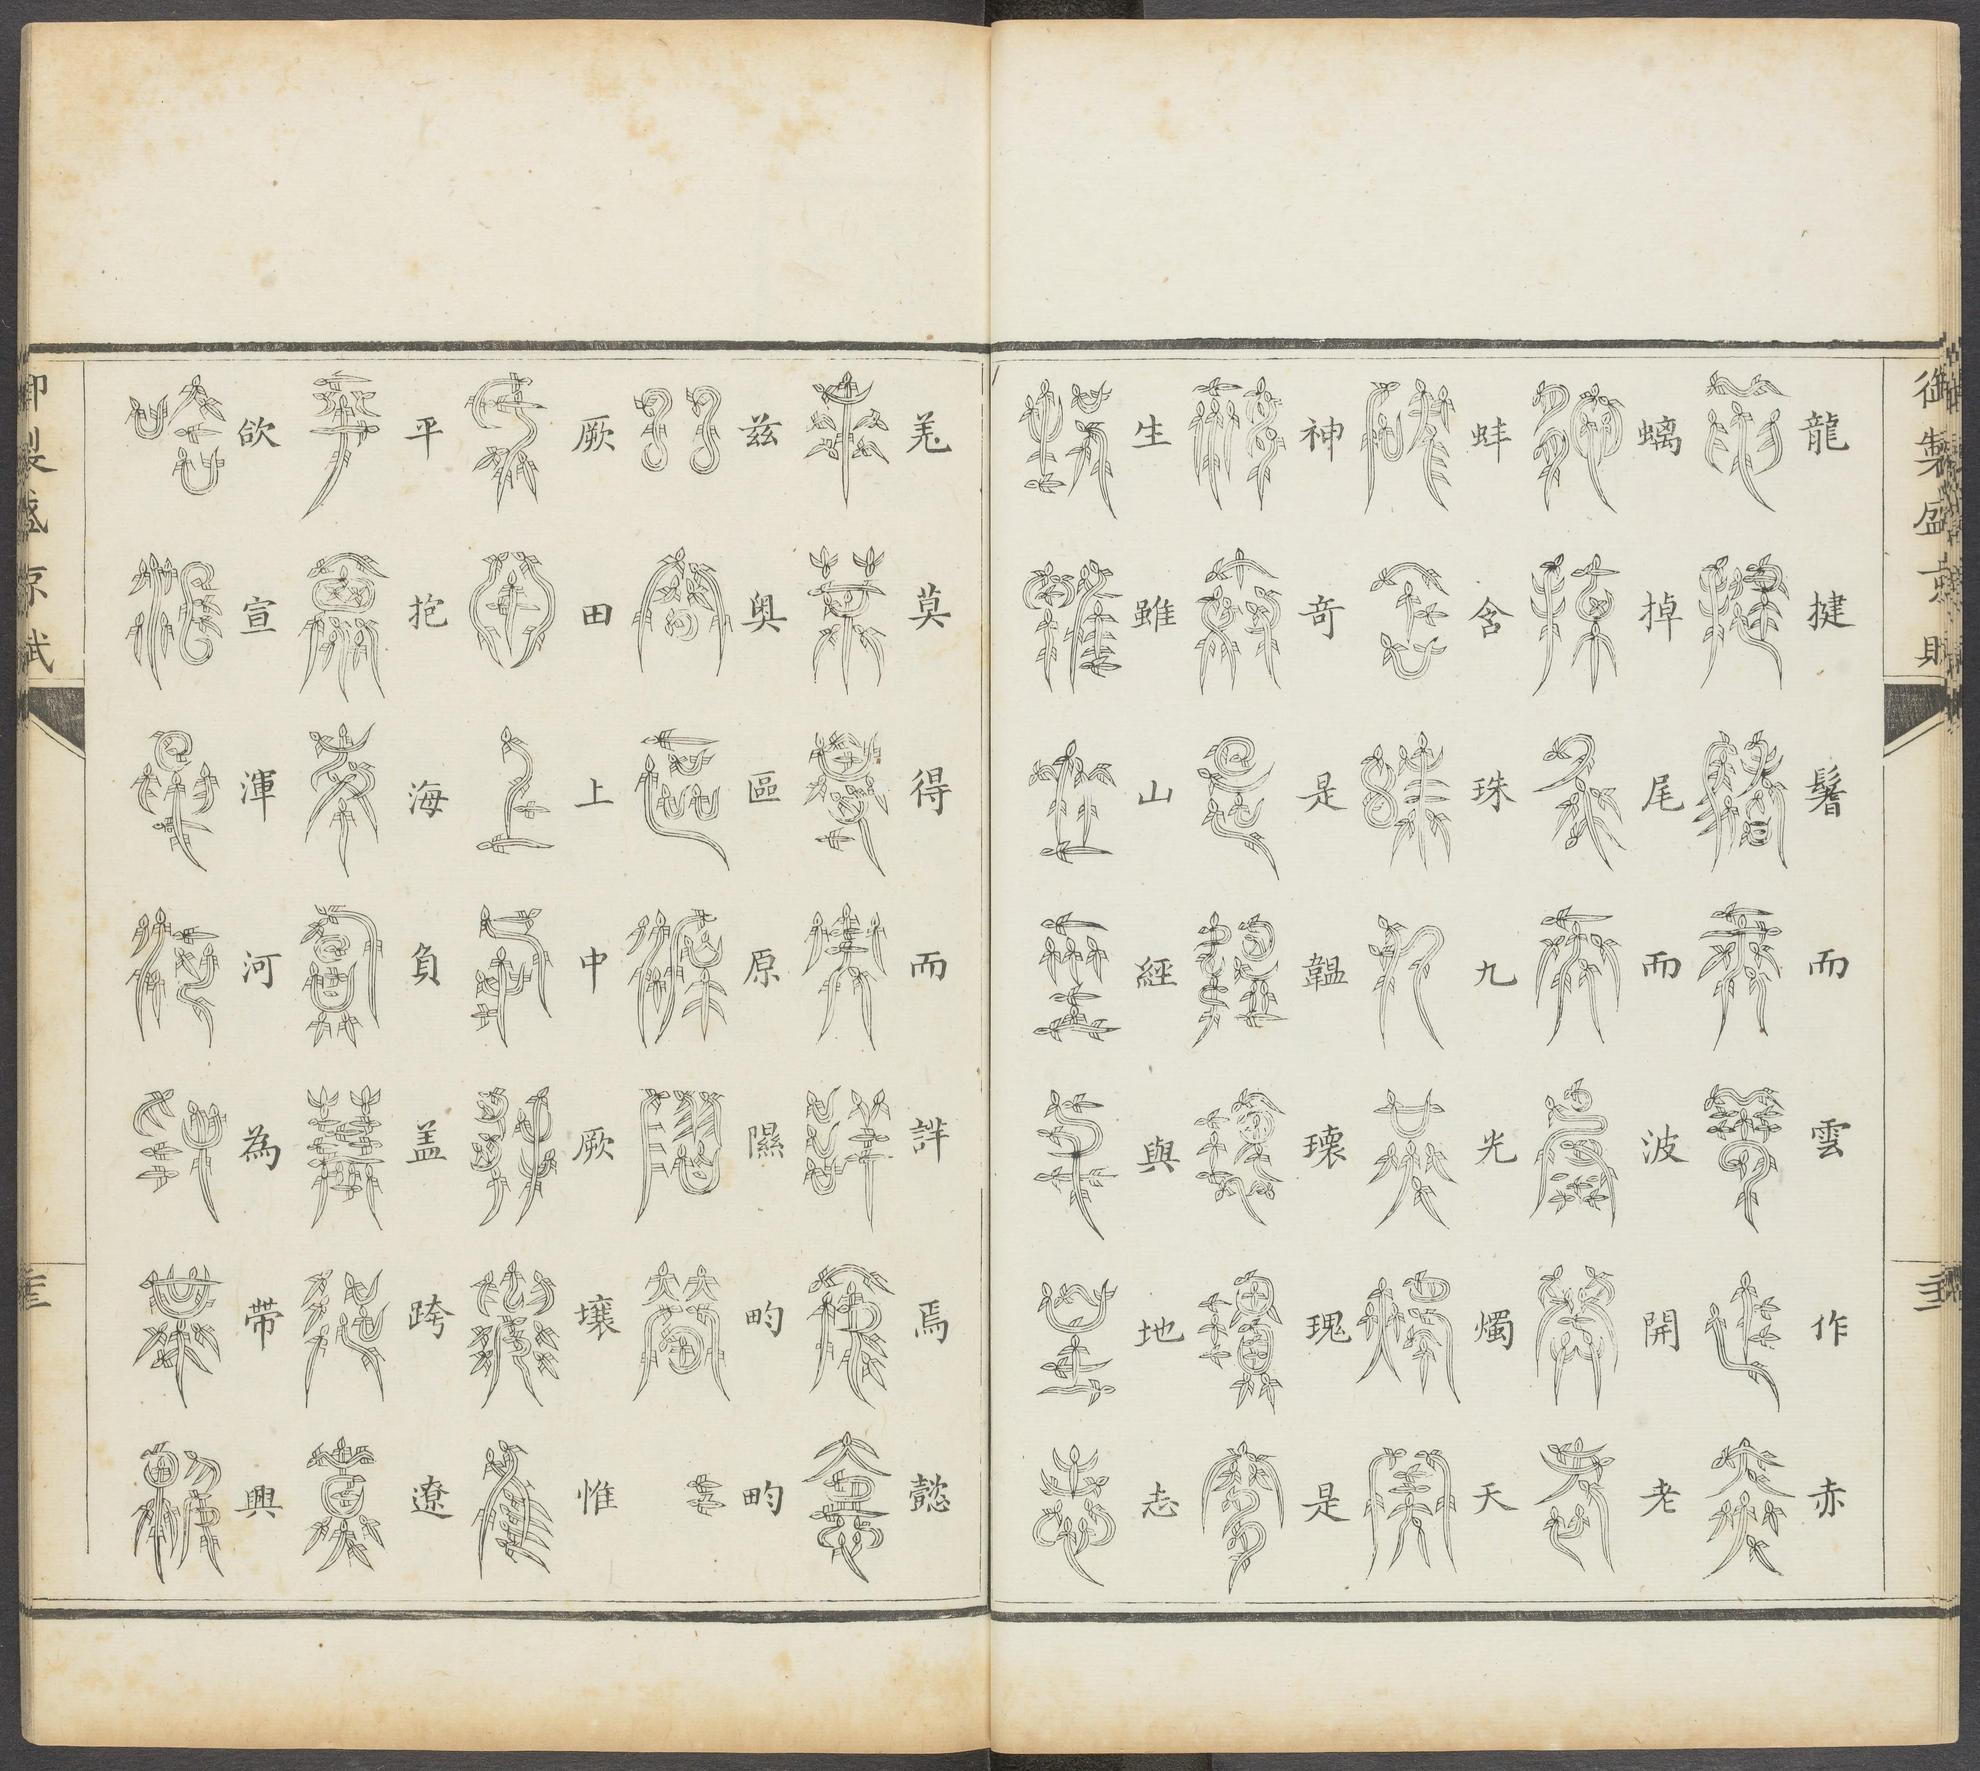 御製盛京賦
龍揵鬐而雲作赤
螭掉尾而波開老
蚌含珠九光燭天
神奇是韞瓌瑰是
生雖山經與地志
羌莫得而詳焉懿
茲奥區原隰畇畇
厥田上中厥壤惟
平抱海負盖跨遼
欱宣渾河為帶興
御製盛京賦